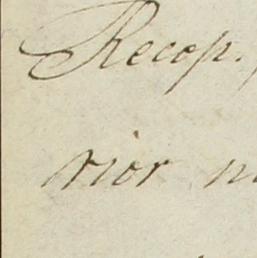 Recop.
rior